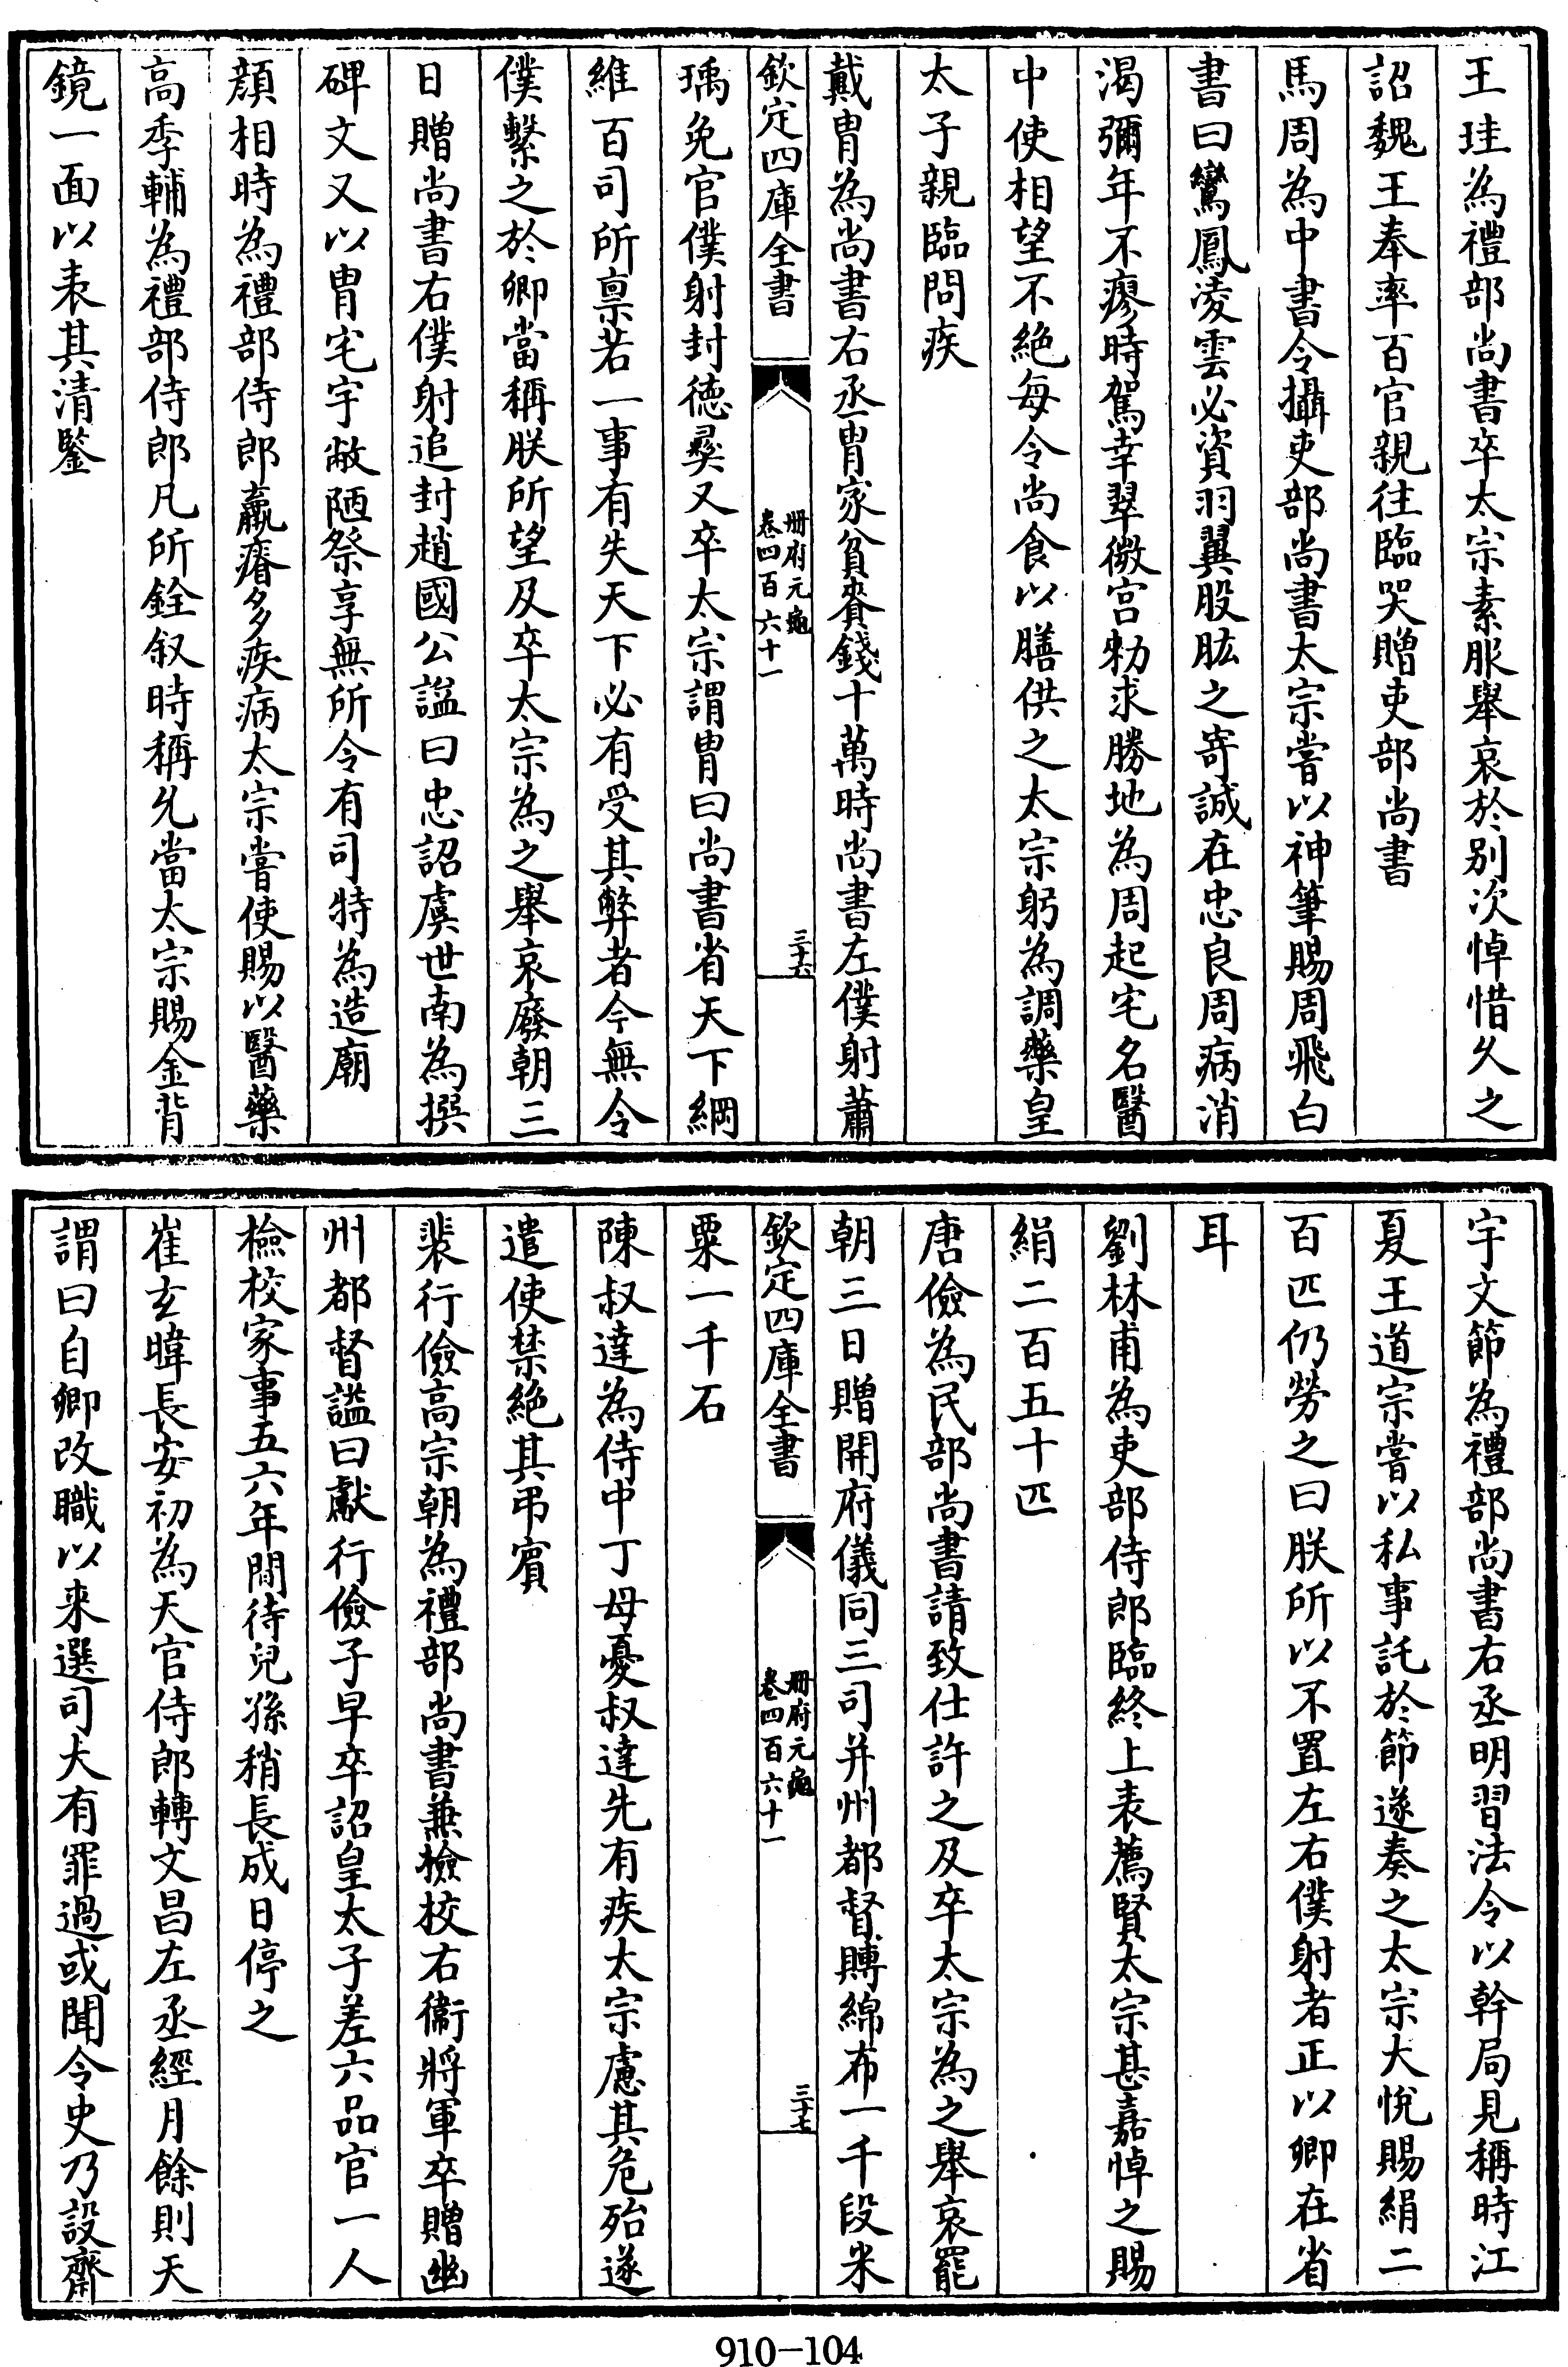 王珪為禮部尚書卒太宗素服舉哀於別次悼惜久之
詔魏王奉率百官親往臨哭贈吏部尚書
馬周為中書令攝吏部尚書太宗嘗以神筆賜周飛白
書曰鸞鳳凌雲必資羽翼股肱之寄誠在忠良周病消
渴彌年不瘳時駕幸翠微宮勑求勝地為周起宅名醫
中使相望不絶每令尚食以膳供之太宗躬為調藥皇
太子親臨問疾
戴胄為尚書右丞胄家貧賚錢十萬時尚書左僕射蕭
欽定四庫全書
冊府元龜
卷四百六十一
三十六
瑀免官僕射封徳彛又卒太宗謂胄曰尚書省天下綱
維百司所禀若一事有失天下必有受其弊者今無令
僕繫之於卿當稱朕所望及卒太宗為之舉哀廢朝三
日贈尚書右僕射追封趙國公謚曰忠詔虞世南為撰
碑文又以胄宅宇敝陋祭享無所令有司特為造廟
顔相時為禮部侍郎羸瘠多疾病太宗嘗使賜以醫藥
高季輔為禮部侍郎凡所銓叙時稱允當太宗賜金背
鏡一面以表其清鑒
宇文節為禮部尚書右丞明習法令以幹局見稱時江
夏王道宗嘗以私事託於節遂奏之太宗大悅賜絹二
百匹仍勞之曰朕所以不置左右僕射者正以卿在省
耳
劉林甫為吏部侍郎臨終上表薦賢太宗甚嘉悼之賜
絹二百五十匹
唐儉為民部尚書請致仕許之及卒太宗為之舉哀罷
朝三日贈開府儀同三司并州都督賻綿布一千段米
欽定四庫全書
冊府元龜
卷四百六十一
三十七
粟一千石
陳叔達為侍中丁母憂叔達先有疾太宗慮其危殆遂
遣使禁絶其弔賓
裴行儉高宗朝為禮部尚書兼檢校右衞將軍卒贈幽
州都督謚曰獻行儉子早卒詔皇太子差六品官一人
檢校家事五六年間待兒孫稍長成日停之
崔玄暐長安初為天官侍郎轉文昌左丞經月餘則天
謂曰自卿改職以來選司大有罪過或聞令史乃設齋
910-104